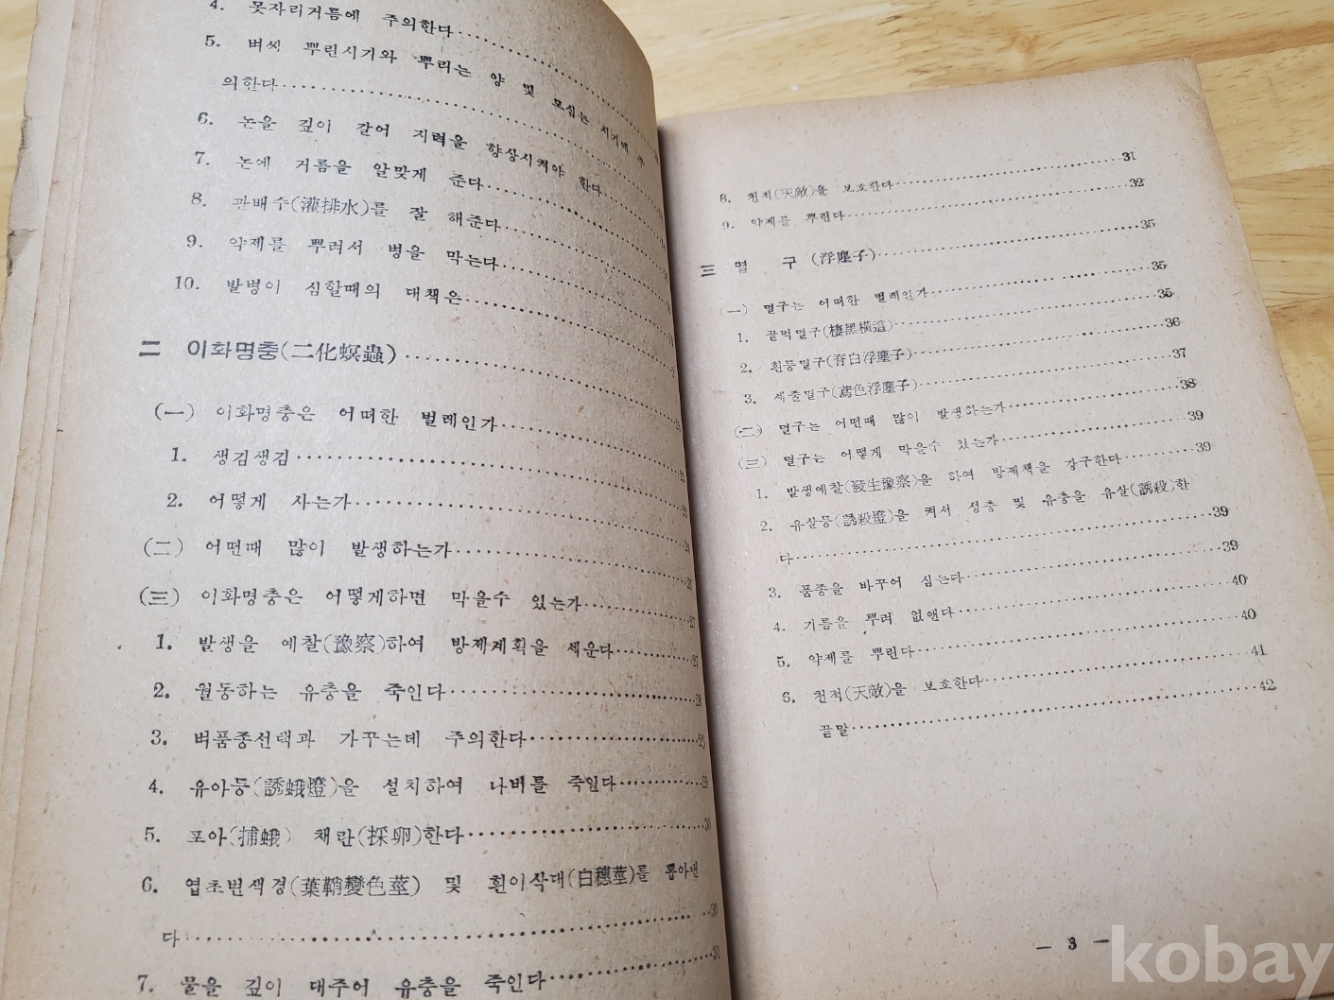 4. 못자리거름에 주의한다
5. 벼씨 뿌린시기와 뿌리는 양 및 모심는 시기에 주
의한다
6. 논을 깊이 갈어 지력을 향상시켜야 한다
7. 논에 거름을 알맞게 준다
8. 관배수(灌排水)를 잘 해준다
9. 약제를 뿌려서 병을 막는다
10. 발병이 심할때의 대책은
二 이화명충(二化螟蟲)
(一) 이화명충은 어떠한 벌레인가
1. 생김생김
2. 어떻게 사는가
(二) 어떤때 많이 발생하는가
(三) 이화명충은 어떻게하면 막을수 있는가 27
1. 발생을 예찰(豫察)하여 방제계획을 세운다 27
2. 월동하는 유충을 죽인다
3. 벼품종선택과 가꾸는데 주의한다
4. 유아등(誘蛾燈)을 설치하여 나비를 죽인다
5. 포아(捕蛾) 채란(採卵)한다 30
6. 엽초변색경(葉鞘變色莖) 및 흰이삭대(白穗莖)를 뽑아낸
다
7. 물을 깊이 대주어 유충을 죽인다
8. 천적(天敵)을 보호한다 31
9. 약제를 뿌린다 32
三 멸 구 (浮塵子) 35
(一) 멸구는 어떠한 벌레인가 35
1. 끝먹멸구(棲黑橫這) 35
2. 흰등멸구(背白浮塵子) 36
3. 세줄멸구(鳶色浮塵子) 37
(二) 멸구는 어떤때 많이 발생하는가 38
(三) 멸구는 어떻게 막을수 있는가 39
1. 발생예찰(發生豫察)을 하여 방제책을 강구한다 39
2. 유살등(誘殺燈)을 켜서 성충 및 유충을 유살(誘殺)한
다 39
3. 품종을 바꾸어 심는다 39
4. 기름을 뿌려 없앤다 40
5. 약제를 뿌린다 40
6. 천적(天敵)을 보호한다 41
끝말 42
— 3 —
kobay